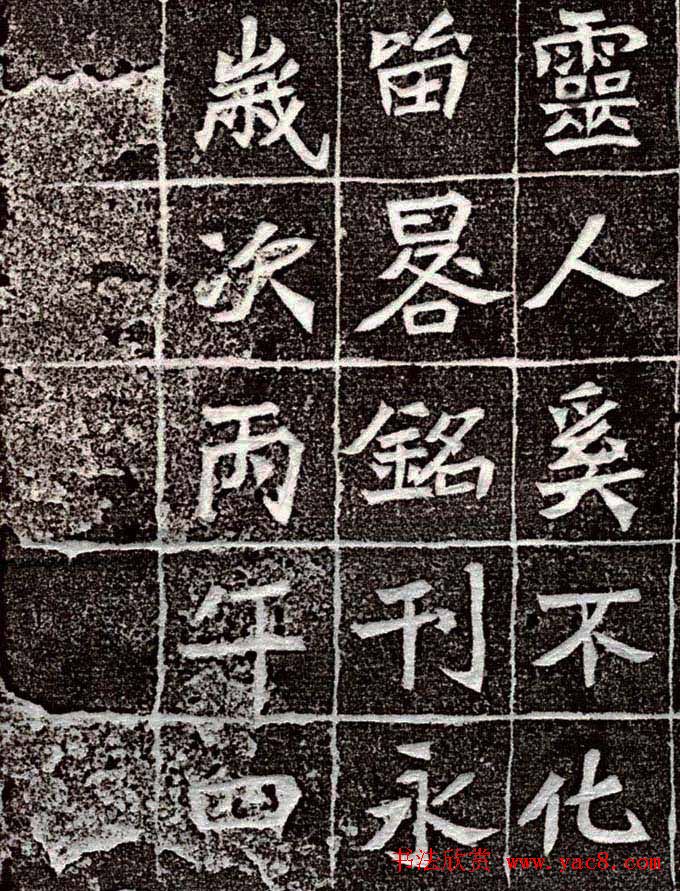 靈人奚不化
留晷銘刊永
歲次丙年四
书法欣赏 www.yac8.com